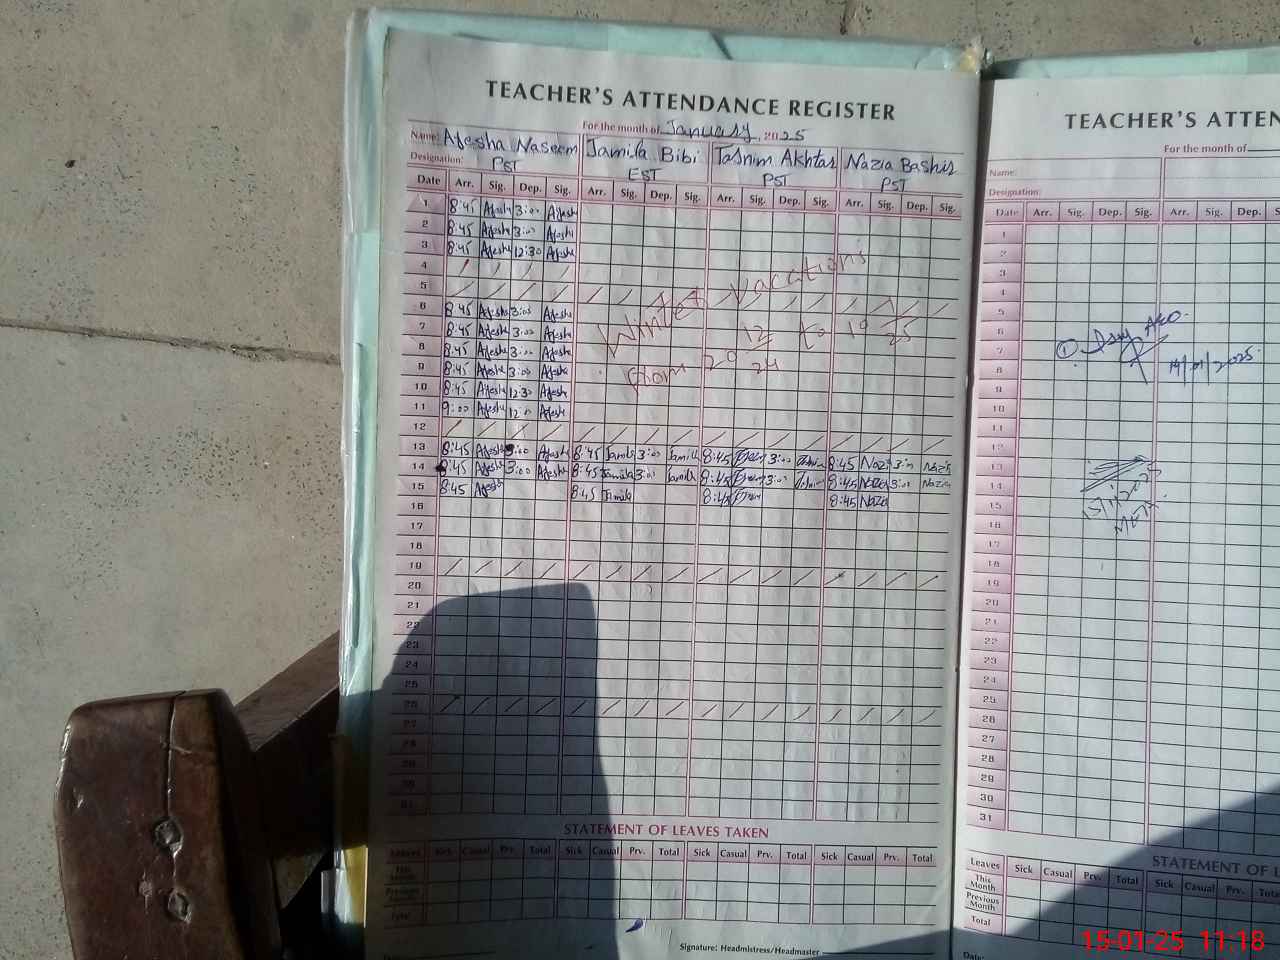 TEACHER'S ATTENDANCE REGISTER
For the month of January, 2025
Name: Ayesha Naseem Jamila Bibi Tasnim Akhtar Nazia Bashir
Designation: PST EST PST PST
Date Arr. Sig. Dep. Sig. Arr. Sig. Dep. Sig. Arr. Sig. Dep. Sig. Arr. Sig. Dep. Sig.
1 8:45 Ayesha 3:00 Ayesha
2 8:45 Ayesha 3:00 Ayesha
3 8:45 Ayesha 12:30 Ayesha
4
5
6 8:45 Ayesha 3:00 Ayesha
7 8:45 Ayesha 3:00 Ayesha
8 8:45 Ayesha 3:00 Ayesha
9 8:45 Ayesha 3:00 Ayesha
10 8:45 Ayesha 12:30 Ayesha
11 9:00 Ayesha 12:00 Ayesha
Winter Vacations
From 20 12/24 to 10 1/25
12
13 8:45 Ayesha 3:00 Ayesha 8:45 Jamila 3:00 Jamila 8:45 3:00 8:45 Nazia 3:00 Nazia
14 8:45 Ayesha 3:00 Ayesha 8:45 Jamila 3:00 Jamila 8:45 3:00 8:45 Nazia 3:00 Nazia
15 8:45 Ayesha 8:45 Jamila 8:45 8:45 Nazia
16
17
18
19
20
21
22
23
24
25
26
27
28
29
30
31
STATEMENT OF LEAVES TAKEN
Leaves Sick Casual Prv. Total Sick Casual Prv. Total Sick Casual Prv. Total Sick Casual Prv. Total
This Month
Previous Month
Total
Signature: Headmistress/Headmaster
TEACHER'S ATTEN
For the month of
Name:
Designation:
Date Arr. Sig. Dep. Sig. Arr. Sig. Dep.
1
2
3
4
5
6
7
8
9
10
11
12
13
14
15
16
17
18
19
20
21
22
23
24
25
26
27
28
29
30
31
① AEO
14/01/2025
15/1/2025
MEA
STATEMENT OF L
Leaves Sick Casual Prv. Total Sick Casual Prv. Total
This Month
Previous Month
Total
Date:
15-01-25 11:18